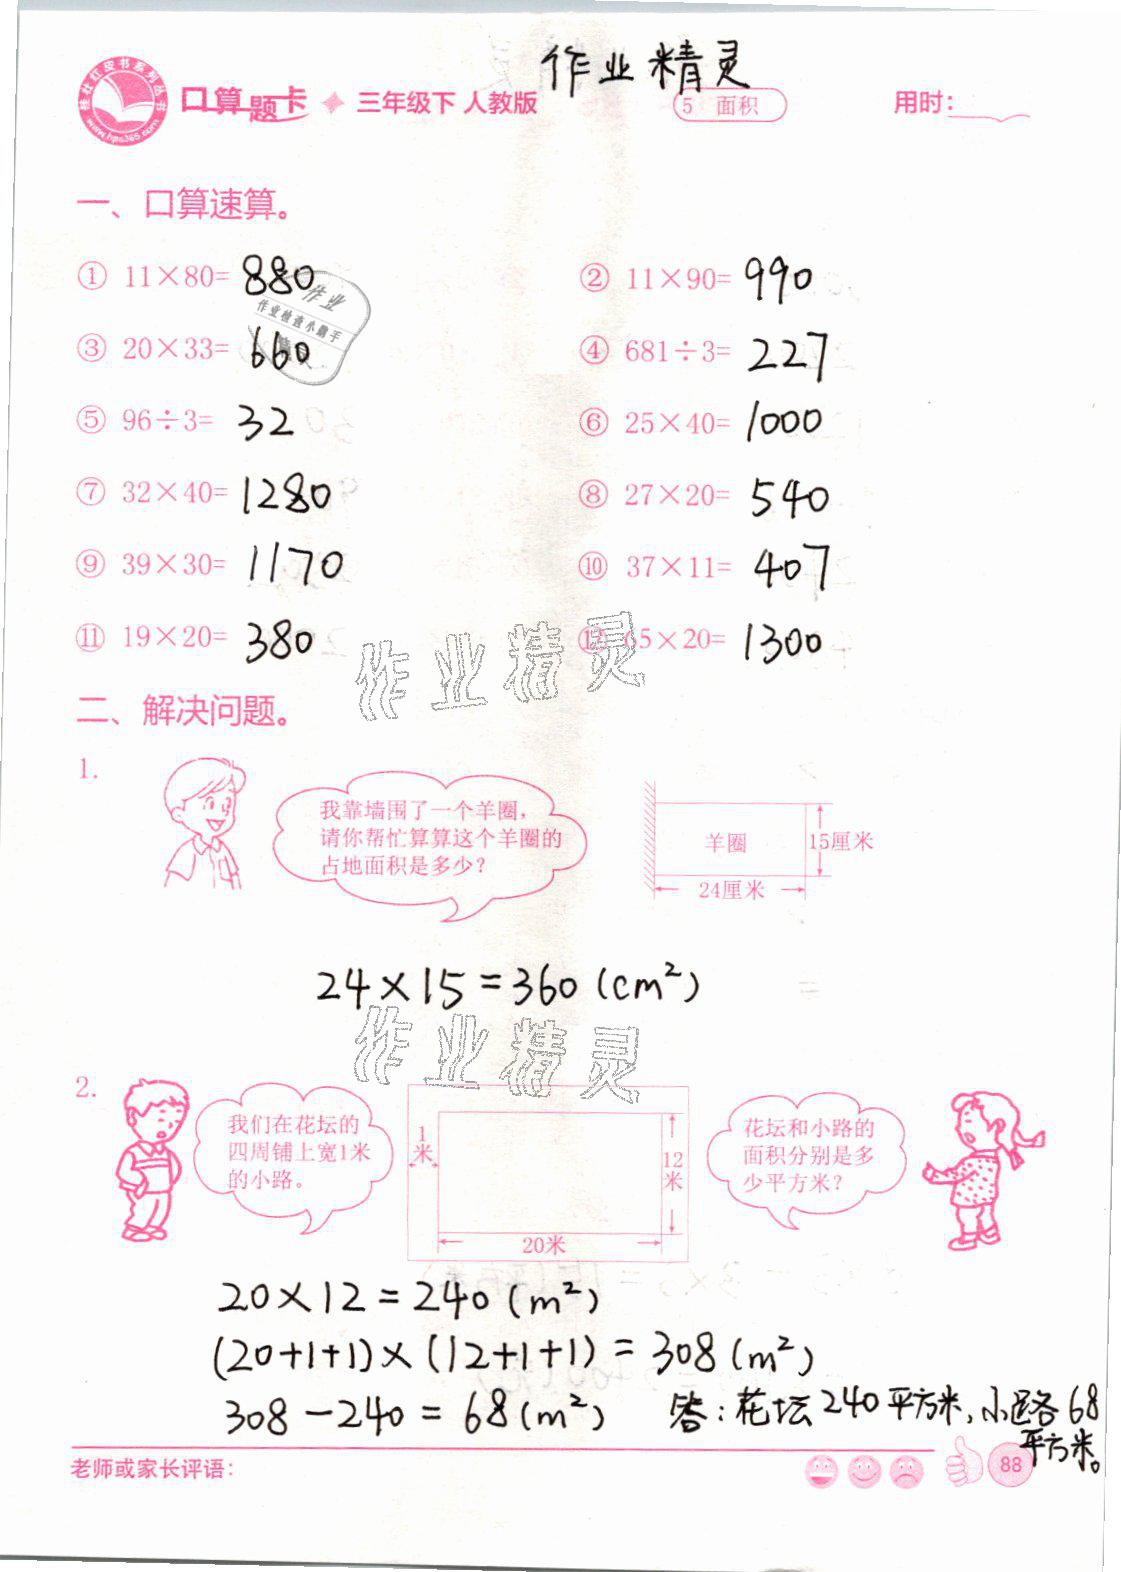 作业精灵
桂壮红皮书系列丛书
www.hps365.com
口算题卡 三年级下 人教版
5 面积
用时:
一、口算速算。
① 11×80= 880
② 11×90= 990
③ 20×33= 660
④ 681÷3= 227
⑤ 96÷3= 32
⑥ 25×40= 1000
⑦ 32×40= 1280
⑧ 27×20= 540
⑨ 39×30= 1170
⑩ 37×11= 407
⑪ 19×20= 380
⑫ 65×20= 1300
作业
作业检查小助手
作业精灵
二、解决问题。
1.
我靠墙围了一个羊圈,
请你帮忙算算这个羊圈的
占地面积是多少?
羊圈
15厘米
24厘米
24×15=360(cm²)
作业精灵
2.
我们在花坛的
四周铺上宽1米
的小路。
1米
12米
20米
花坛和小路的
面积分别是多
少平方米?
20×12=240(m²)
(20+1+1)×(12+1+1)=308(m²)
308-240=68(m²)
答:花坛240平方米,小路68
平方米。
老师或家长评语:
88